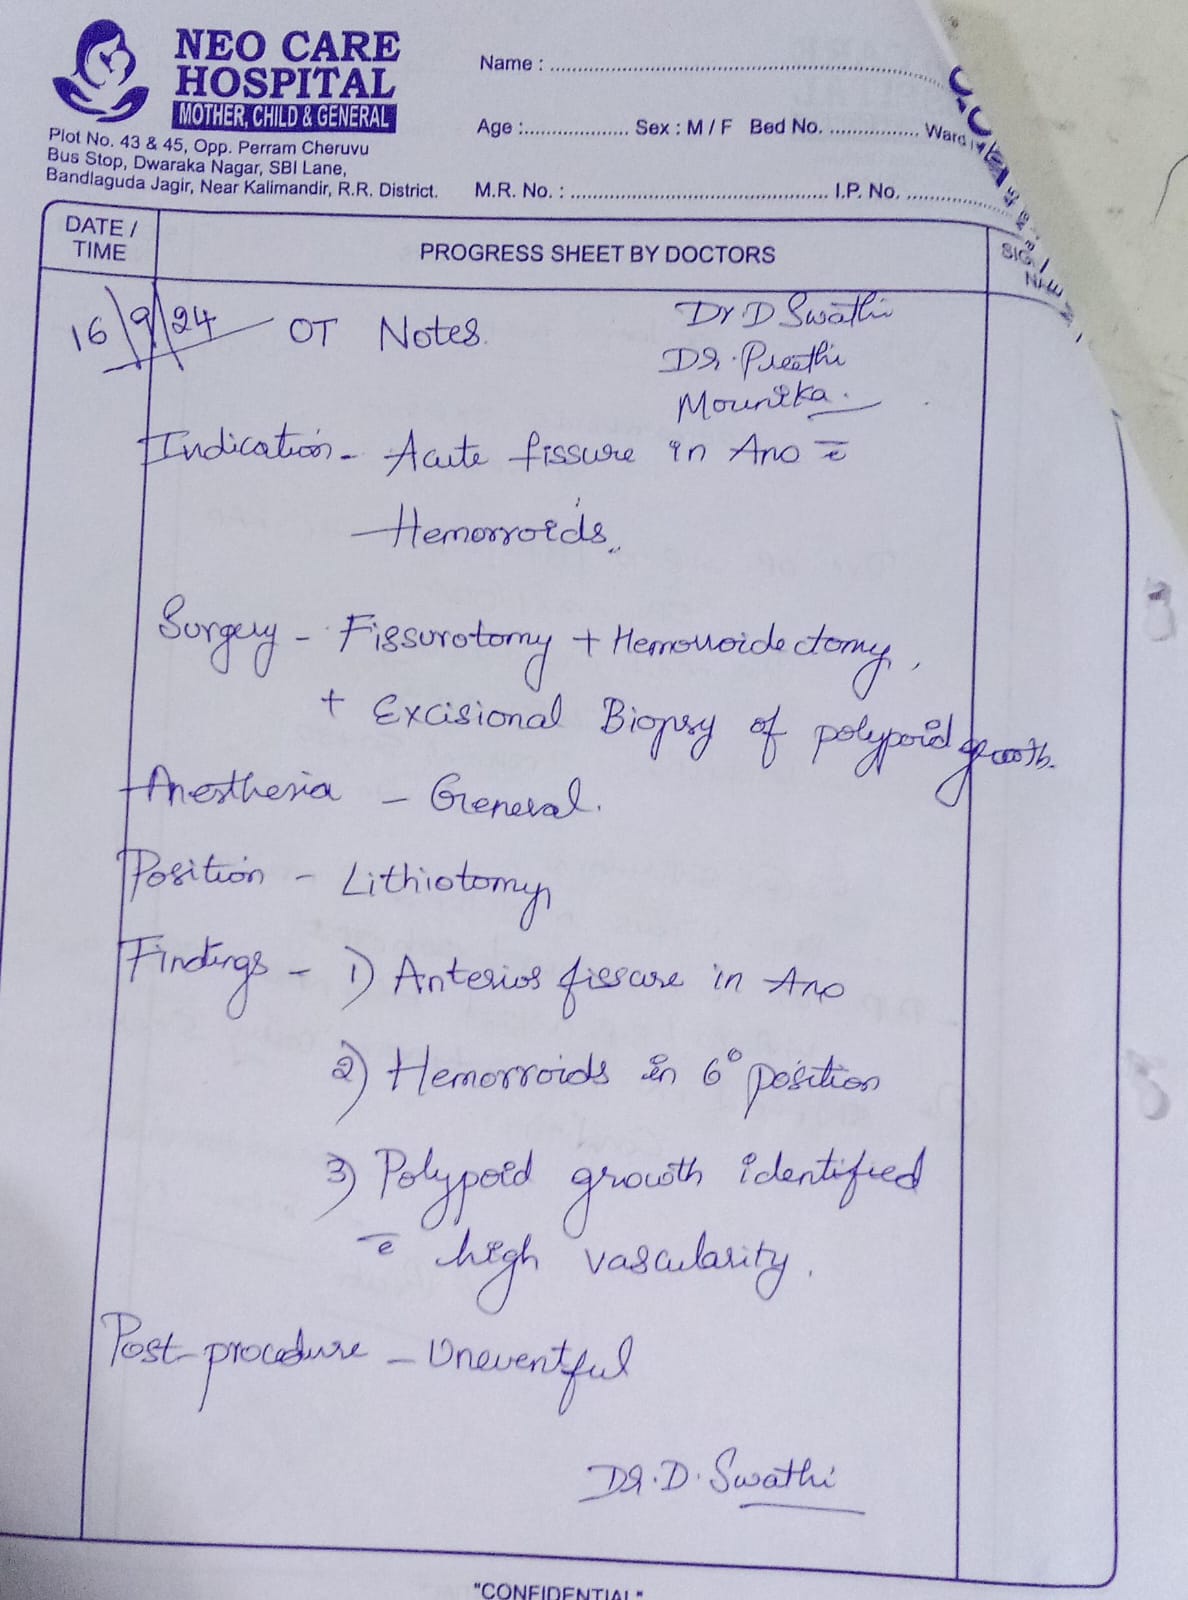 NEO CARE
HOSPITAL
MOTHER, CHILD & GENERAL
Plot No. 43 & 45, Opp. Perram Cheruvu
Bus Stop, Dwaraka Nagar, SBI Lane,
Bandlaguda Jagir, Near Kalimandir, R.R. District.
Name : ................................................
Age :.................. Sex : M / F Bed No. ............... Ward
M.R. No. : ............................................. I.P. No. .................
DATE /
TIME
PROGRESS SHEET BY DOCTORS
16/9/24 OT Notes.
Dr D Swathi
Dr. Preethi
Mounika.
Indication - Acute fissure in Ano c̄
Hemorroids
Surgery - Fissurotomy + Hemorroidectomy,
+ Excisional Biopsy of polypoid growth.
Anesthesia - General.
Position - Lithiotomy
Findings - 1) Anterior fissure in Ano
2) Hemorroids in 6° position
3) Polypoid growth identified
c̄ high vascularity.
Post procedure - Uneventful
Dr. D. Swathi
"CONFIDENTIAL"